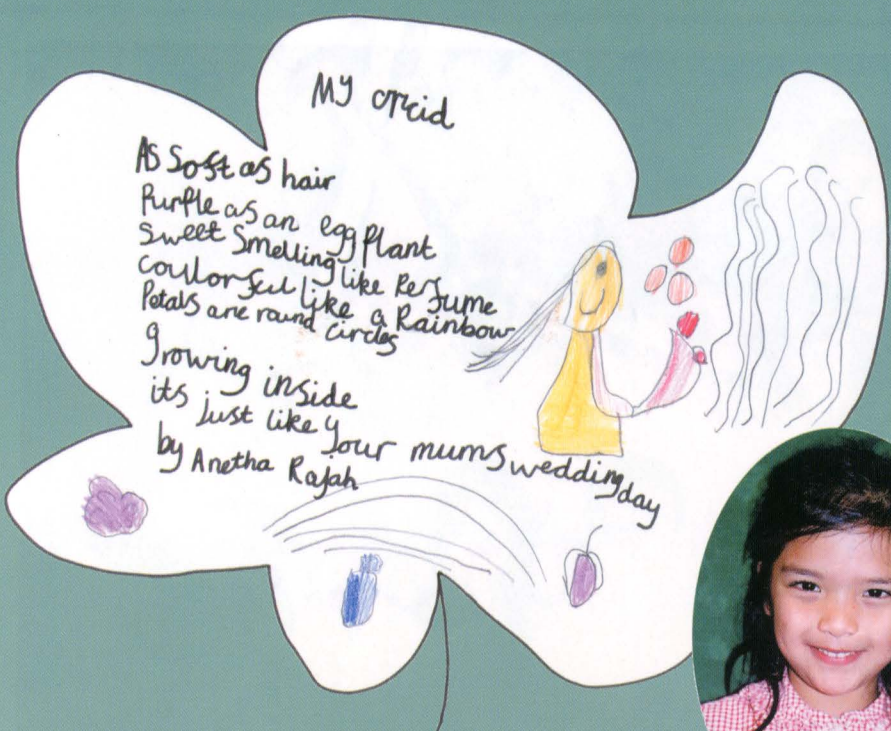 My orcid
As Soft as hair
Purple as an egg plant
Sweet Smelling like Perfume
coulorful like a Rainbow
Petals are round circles
growing inside
its just like your mums wedding day
by Anetha Rajah